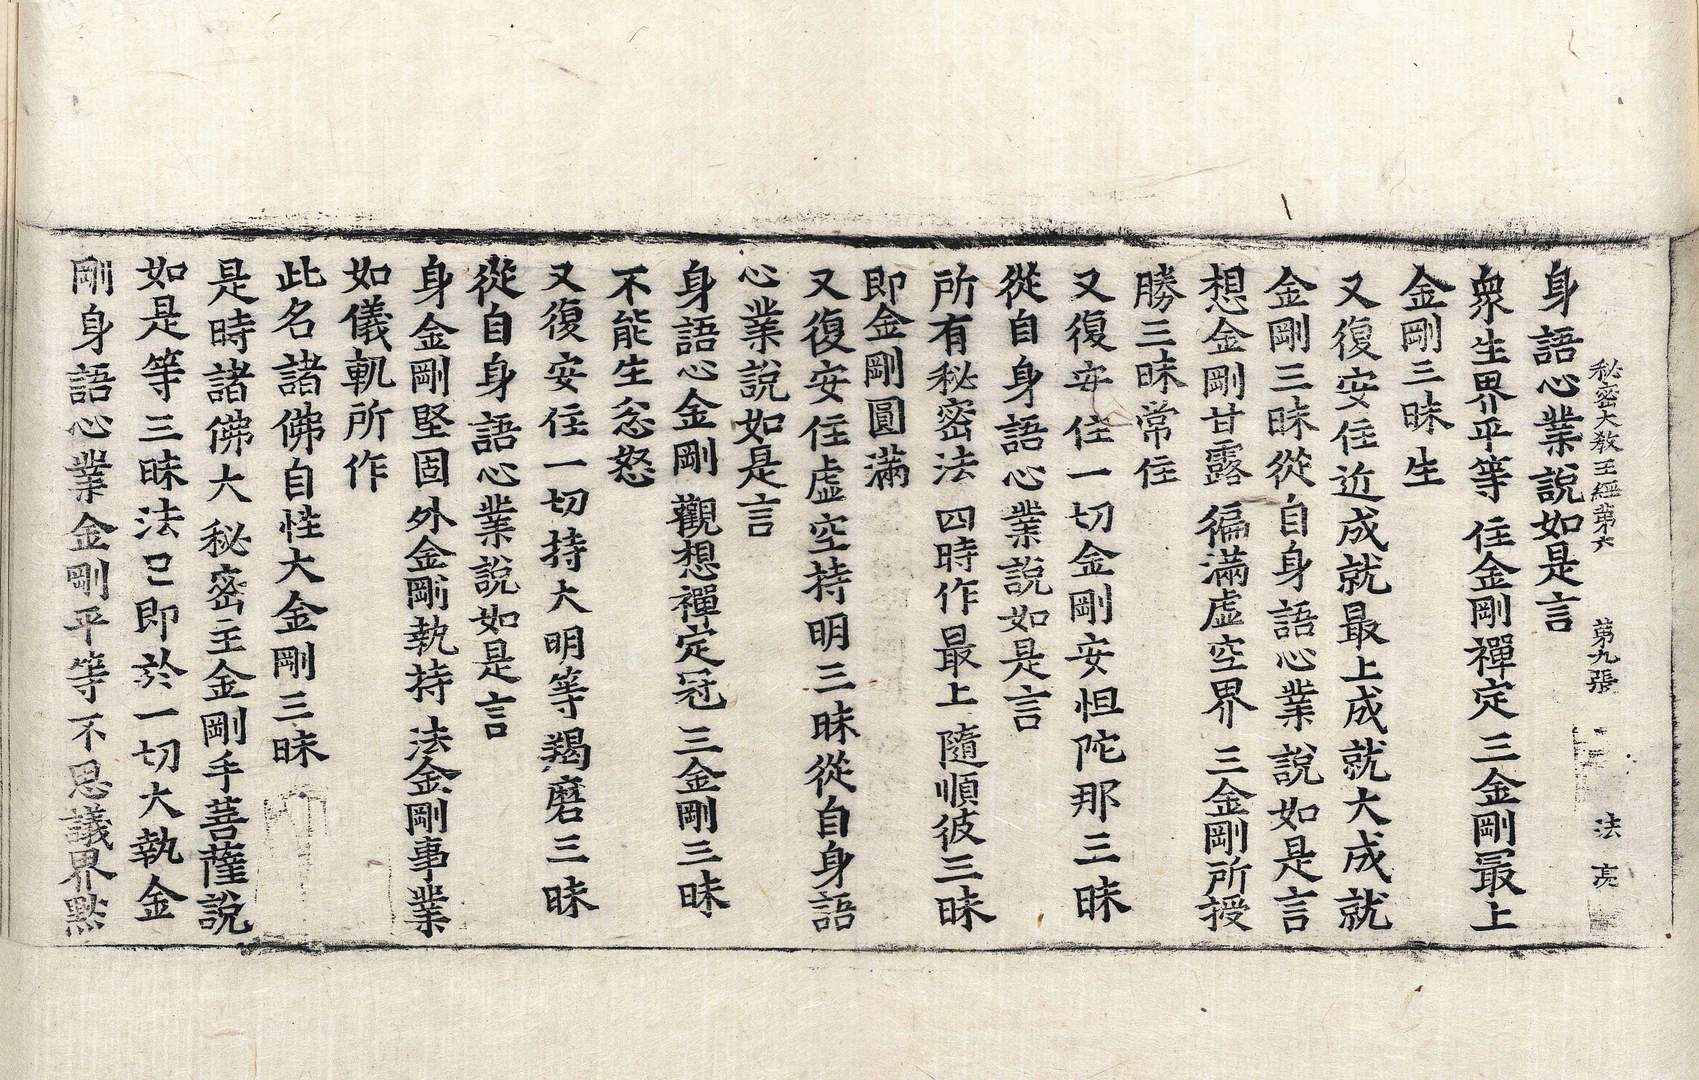 秘密大教王經第六 第九張 法亮
身語心業說如是言
衆生界平等 住金剛禪定 三金剛最上
金剛三昧生
又復安住近成就最上成就大成就
金剛三昧從自身語心業說如是言
想金剛甘露 徧滿虛空界 三金剛所授
勝三昧常住
又復安住一切金剛安怛陀那三昧
從自身語心業說如是言
所有秘密法 四時作最上 隨順彼三昧
即金剛圓滿
又復安住虛空持明三昧從自身語
心業說如是言
身語心金剛 觀想禪定冠 三金剛三昧
不能生忿怒
又復安住一切持大明等羯磨三昧
從自身語心業說如是言
身金剛堅固 外金剛執持 法金剛事業
如儀軌所作
此名諸佛自性大金剛三昧
是時諸佛大秘密主金剛手菩薩說
如是等三昧法已即於一切大執金
剛身語心業金剛平等不思議界默